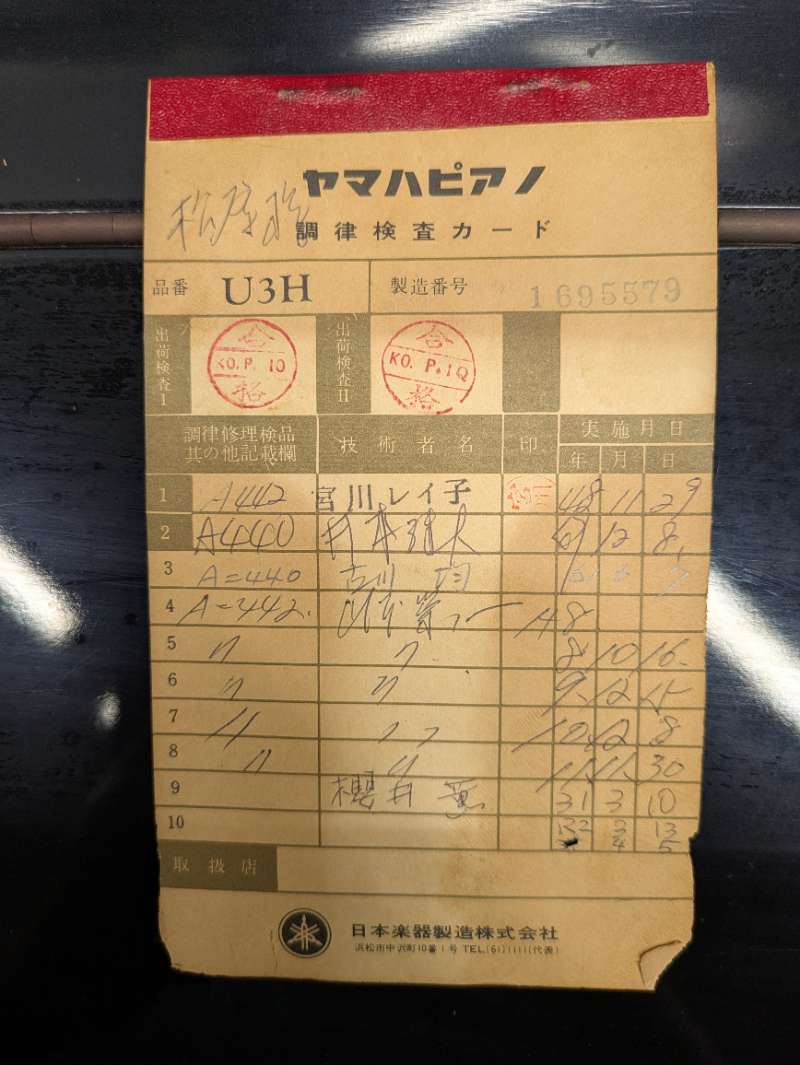 ヤマハピアノ
調律検査カード
品番 U3H 製造番号 1695579
出荷検査I 合格 KO.P.IQ 出荷検査II 合格 KO.P.IQ
調律修理検品其の他記載欄 技術者名 印 実施月日
年 月 日
1 A442 宮川レイ子 48 11 29
2 A440 12 8
3 A=440 古川 均 7
4 A=442. H8
5 〃 〃 8 10 16
6 〃 〃 9 12 15
7 〃 〃 10 12 8
8 〃 〃 11 11 30
9 櫻井 31 3 10
10 3 13
4 5
取扱店
日本楽器製造株式会社
浜松市中沢町10番1号 TEL.(61)1111(代表)